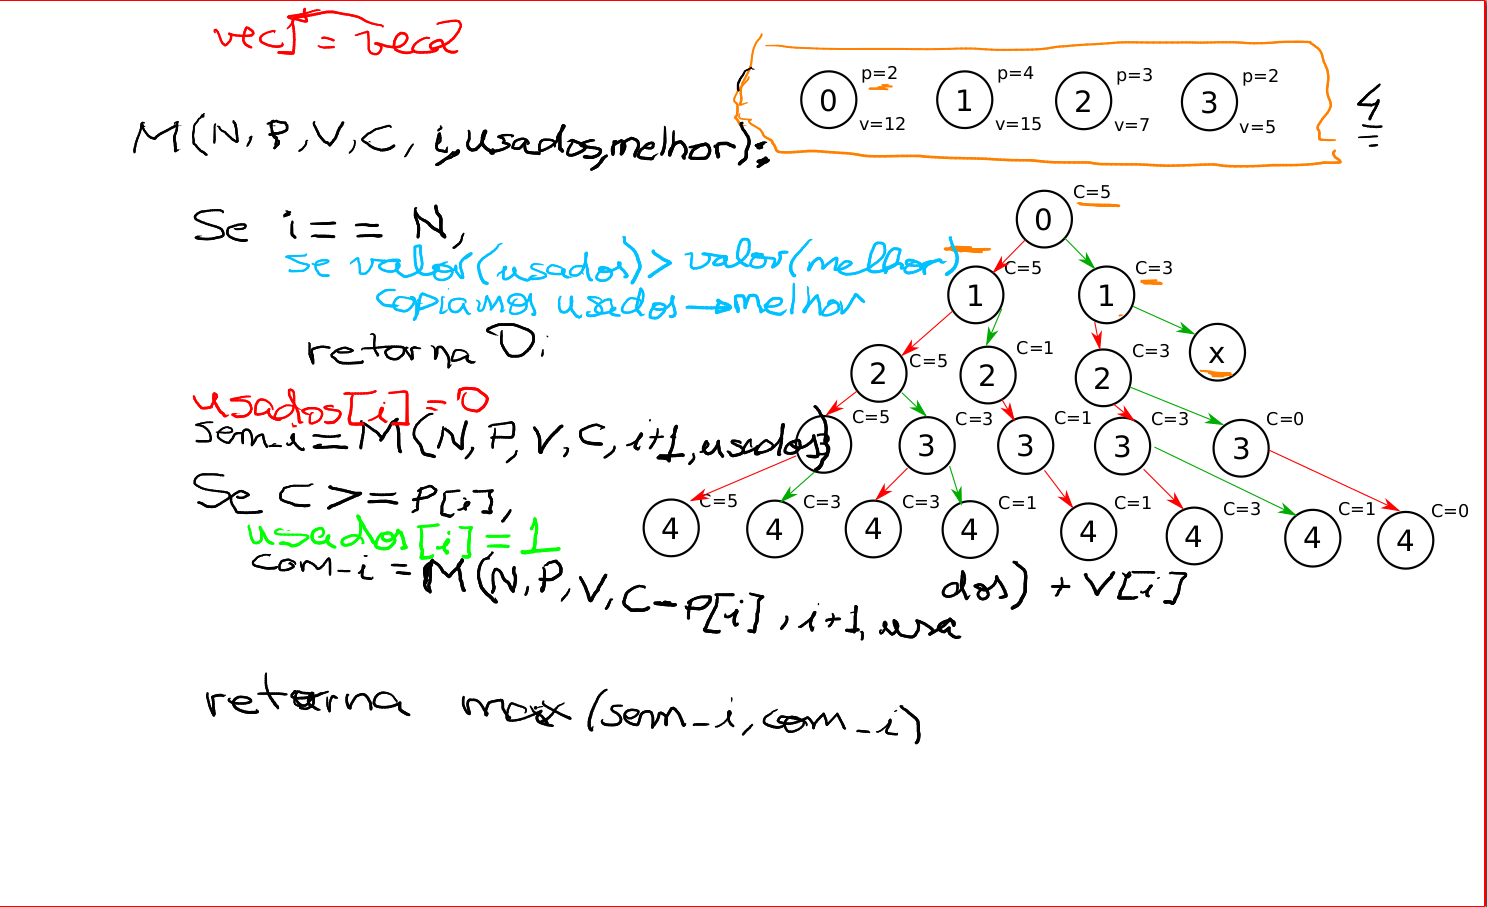 vec1 = vec2
0 p=2 v=12 1 p=4 v=15 2 p=3 v=7 3 p=2 v=5 4
M(N, P, V, C, i, usados, melhor):
Se i == N,
se valor(usados) > valor(melhor)
copiamos usados → melhor
retorna 0;
usados[i] = 0
sem_i = M(N, P, V, C, i+1, usados)
Se C >= P[i],
usados[i] = 1
com_i = M(N, P, V, C-P[i], i+1, usa
dos) + V[i]
retorna max(sem_i, com_i)
0 C=5
1 C=5 1 C=3
2 C=5 2 C=1 2 C=3 x
3 C=5 3 C=3 3 C=1 3 C=3 3 C=0
4 C=5 4 C=3 4 C=3 4 C=1 4 C=1 4 C=3 4 C=1 4 C=0